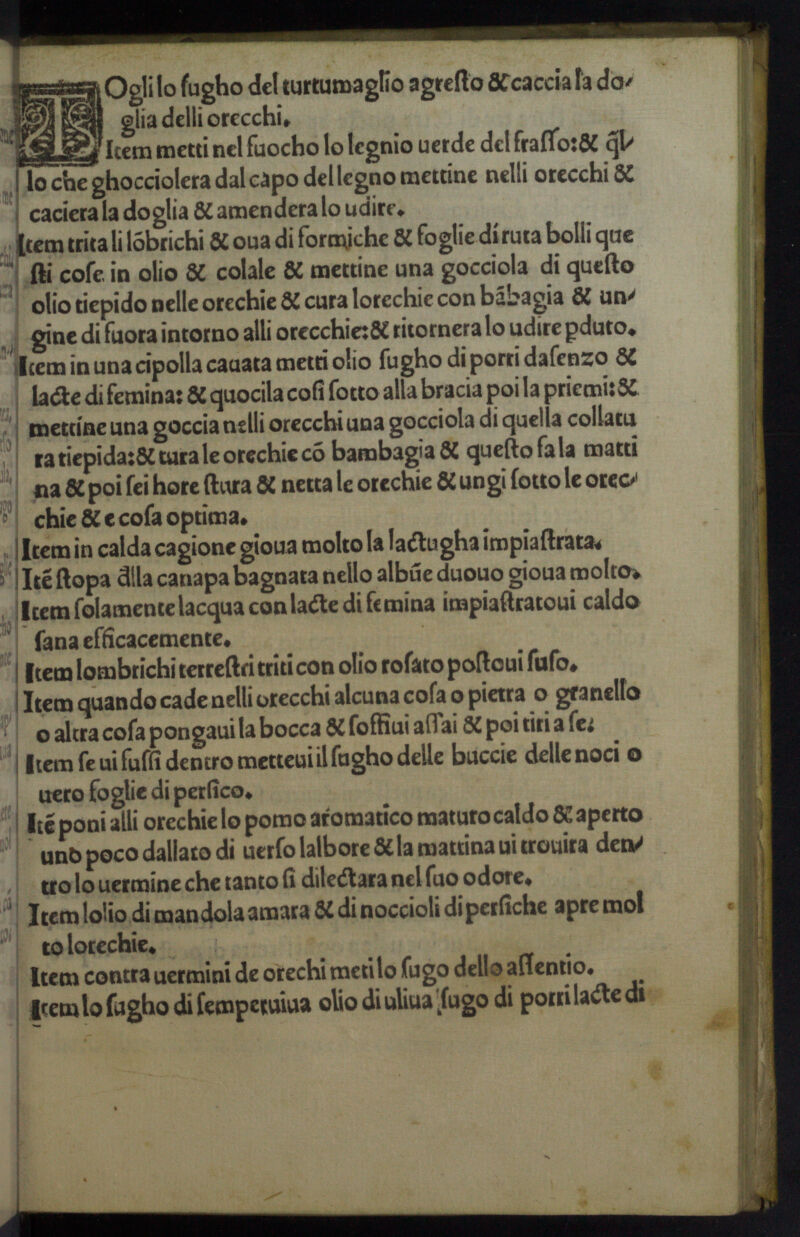 TOgli lo ſugho del turtumaglio agreſto & caccia la do-
glia delli orecchi.
Item metti nel fuocho lo legnio uerde del fraſſo: & q̃l-
lo che ghocciolera dal capo del legno mettine nelli orecchi &
caciera la doglia & amendera lo udire.
Item trita li lõbrichi & oua di formiche & foglie di ruta bolli que
ſti coſe in olio & colale & mettine una gocciola di queſto
olio tiepido nelle orechie & cura lorechie con bãbagia & un-
gine di fuora intorno alli orecchie: & ritornera lo udire pduto.
Item in una cipolla cauata metti olio ſugho di porri daſenzo &
lacte di femina: & quocila coſi ſotto alla bracia poi la priemi: &
mettine una goccia nelli orecchi una gocciola di quella collatu
ra tiepida: & tura le orechie cõ bambagia & queſto fa la matti
na & poi ſei hore ſtura & netta le orechie & ungi ſotto le orec-
chie & e coſa optima.
Item in calda cagione gioua molto la lactugha impiaſtrata.
Itẽ ſtopa dlla canapa bagnata nello albũe duouo gioua molto.
Item ſolamente lacqua con lacte di femina impiaſtratoui caldo
ſana efficacemente.
Item lombrichi terreſtri triti con olio roſato poſtoui ſuſo.
Item quando cade nelli orecchi alcuna coſa o pietra o granello
o altra coſa pongaui la bocca & ſoffiui aſſai & poi tiri a ſe:
Item ſe ui fuſſi dentro metteui il ſugho delle buccie delle noci o
uero foglie di perſico.
Itẽ poni alli orechie lo pomo aromatico maturo caldo & aperto
uno poco dallato di uerſo lalbore & la mattina ui trouira den-
tro lo uermine che tanto ſi dilectara nel ſuo odore.
Item lolio di mandola amara & di noccioli di perſiche apre mol
to lorechie.
Item contra uermini de orechi meti lo ſugo dello aſſentio.
Item lo ſugho di ſemperuiua olio di uliua ſugo di porri lacte di